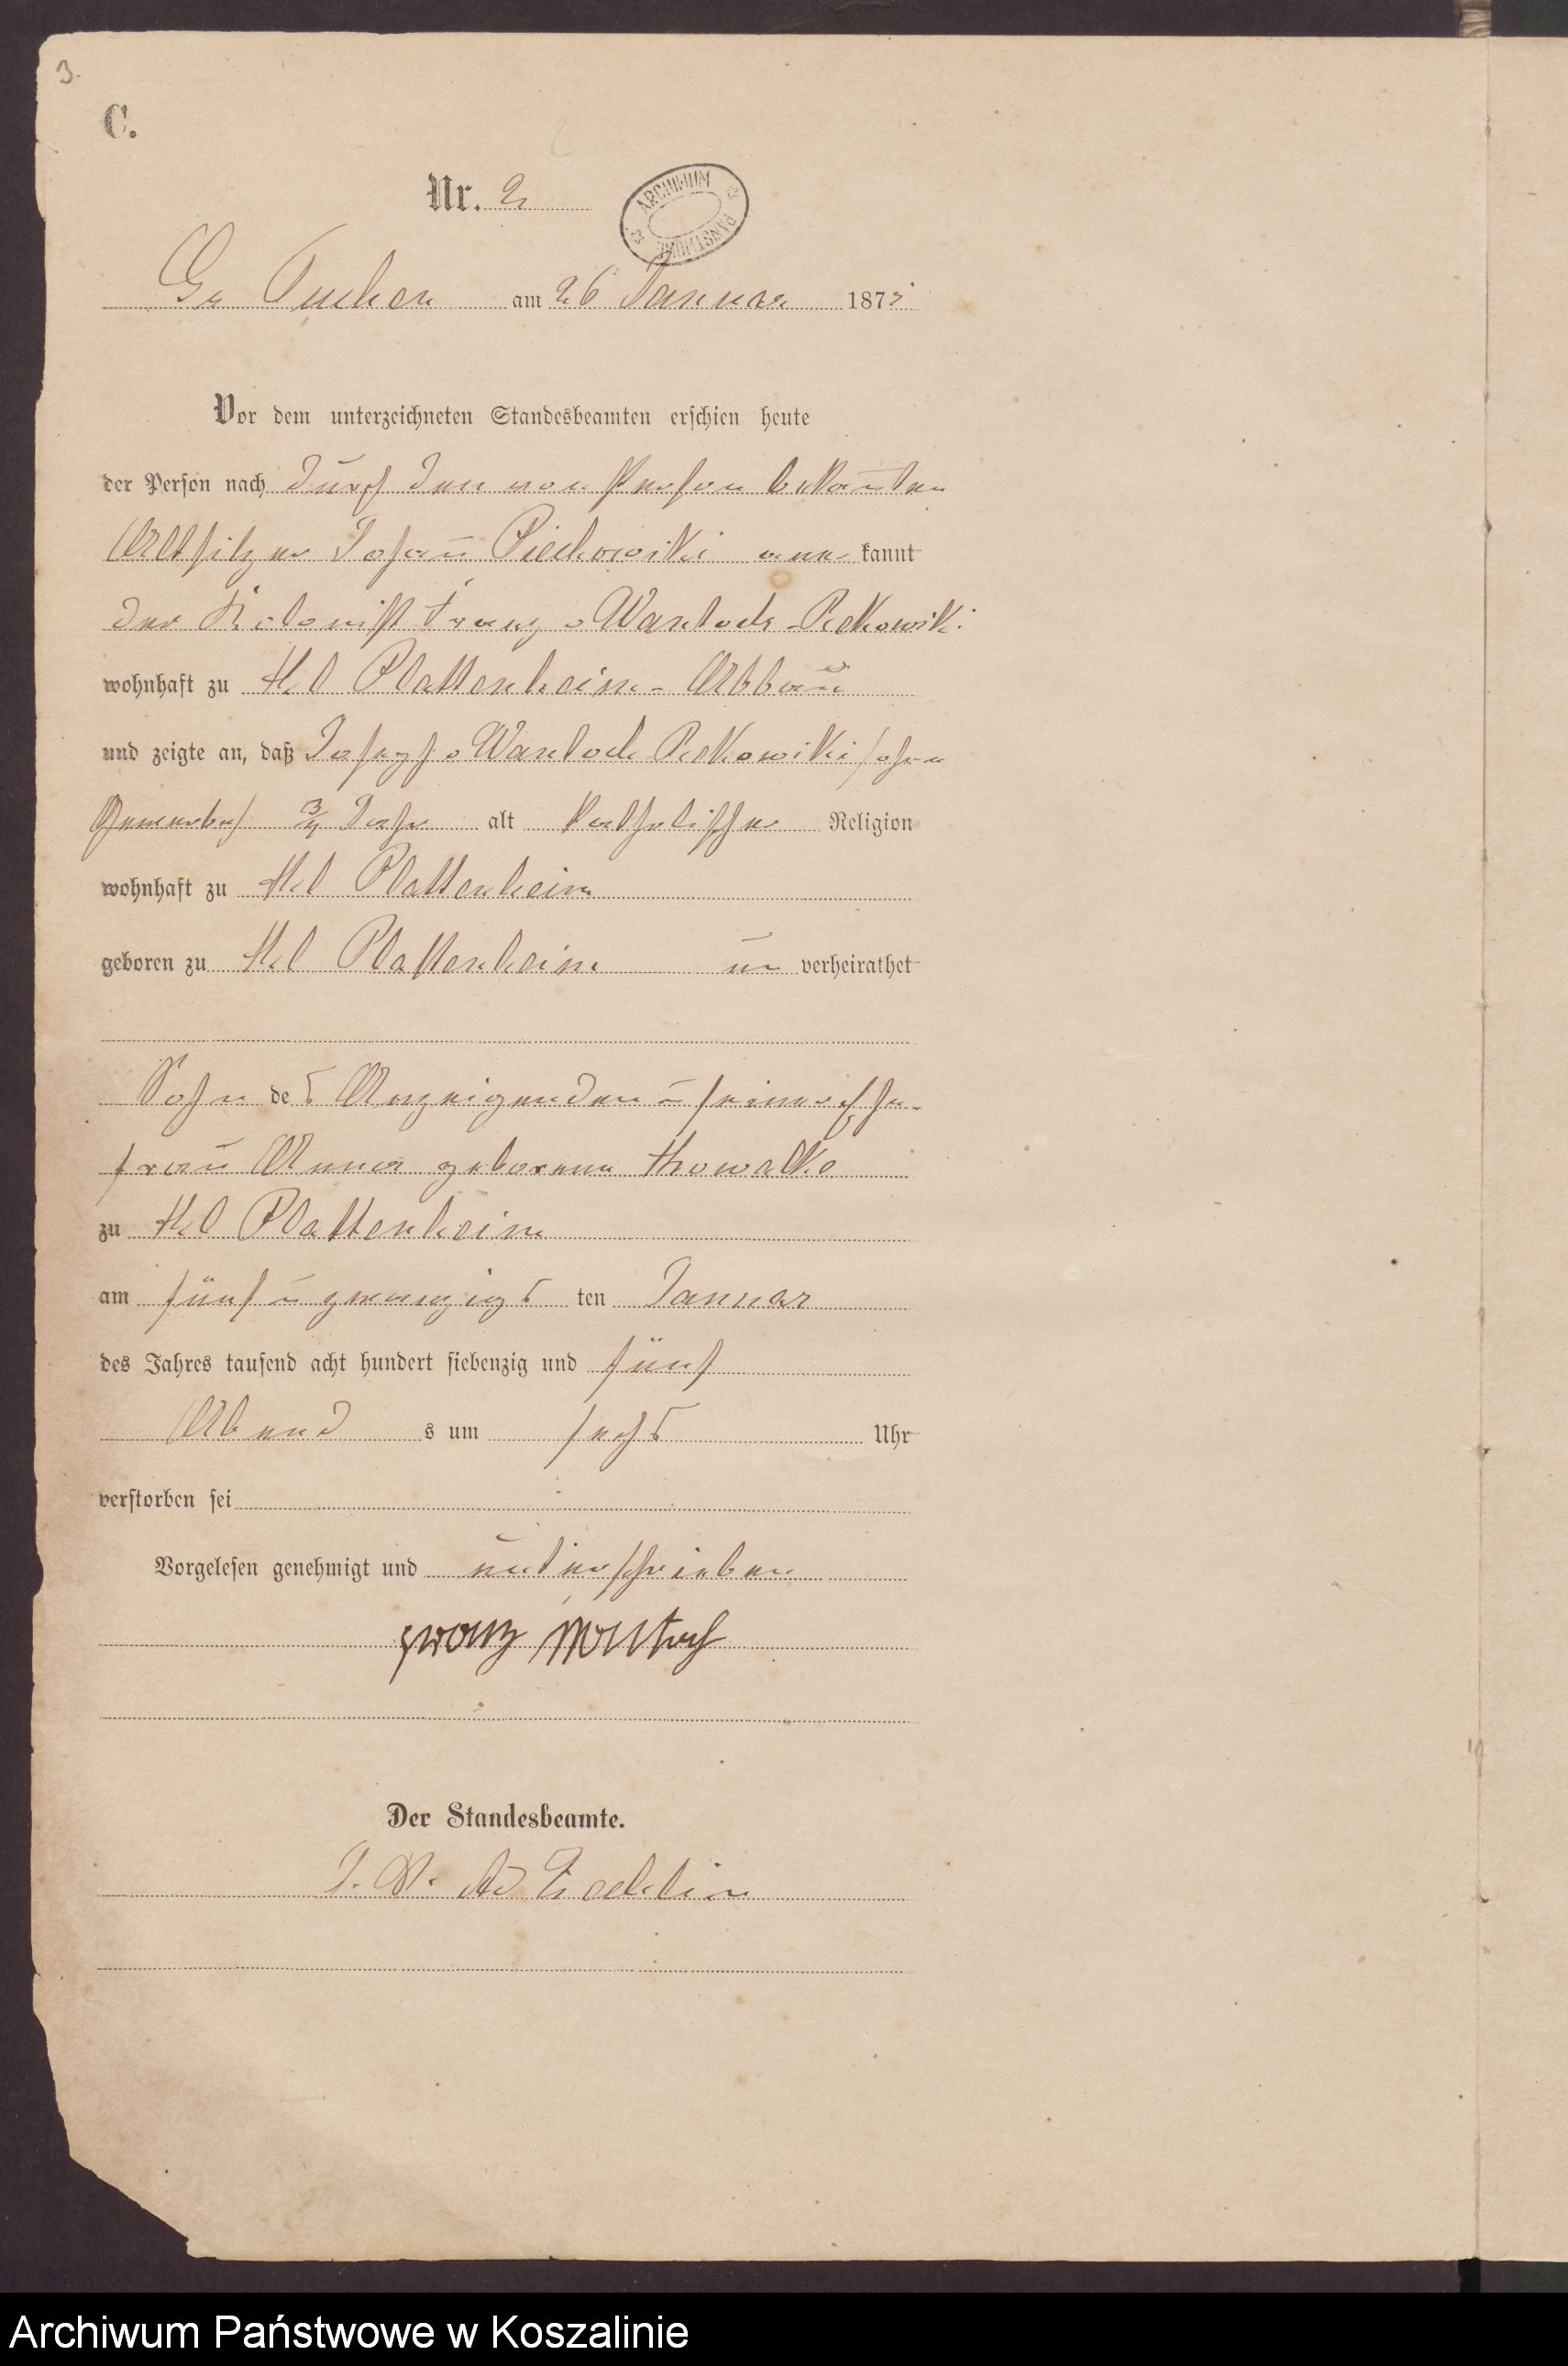 3.
C.
Nr. 2
ARCHIWUM PAŃSTWOWE
Gr Tuchen am 26 Januar 1875
Vor dem unterzeichneten Standesbeamten erschien heute
der Person nach durch den von Person bekannten
Altsitzer Johann aner kannt
der Kolonist Franz v Wantoch Rekowski
wohnhaft zu Kl Platenheim - Abbau
und zeigte an, daß Joseph v Wantoch Rekowski ohne
Gewerbes 3/4 Jahr alt katholischer Religion
wohnhaft zu Kl Plattenheim
geboren zu Kl Plattenheim un verheirathet
Sohn des Anzeigenden u seiner Ehe-
frau Anna geborene
zu Kl Plattenheim
am fünf u zwanzigs ten Januar
des Jahres tausend acht hundert siebenzig und fünf
Abend s um sechs Uhr
verstorben sei
Vorgelesen genehmigt und unterschrieben
Franz
Der Standesbeamte.
J. V.
Archiwum Państwowe w Koszalinie